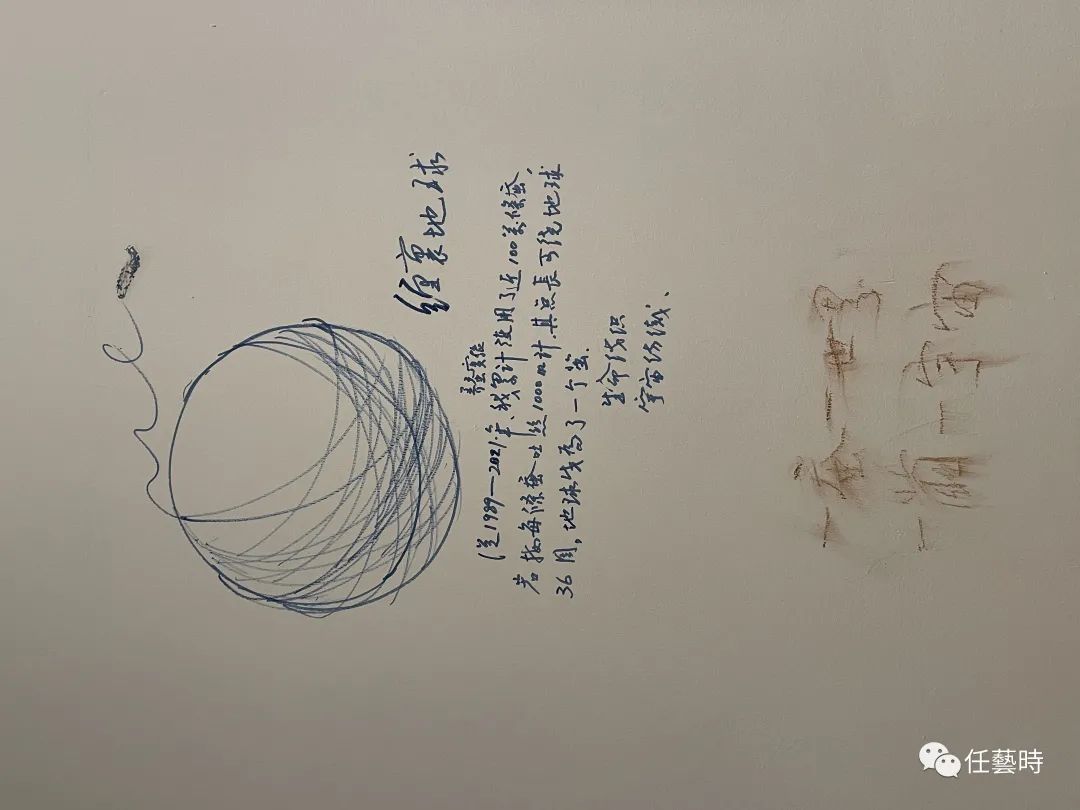 缠裹地球
实验
(从1989—2021年、我累计使用了近100万条蚕,
若按每条蚕吐丝1000m计.其总长可绕地球
36周,地球成为了一个茧.
生命纺织
宇宙纺线、
一蚕一
一茧一宇宙
任藝時